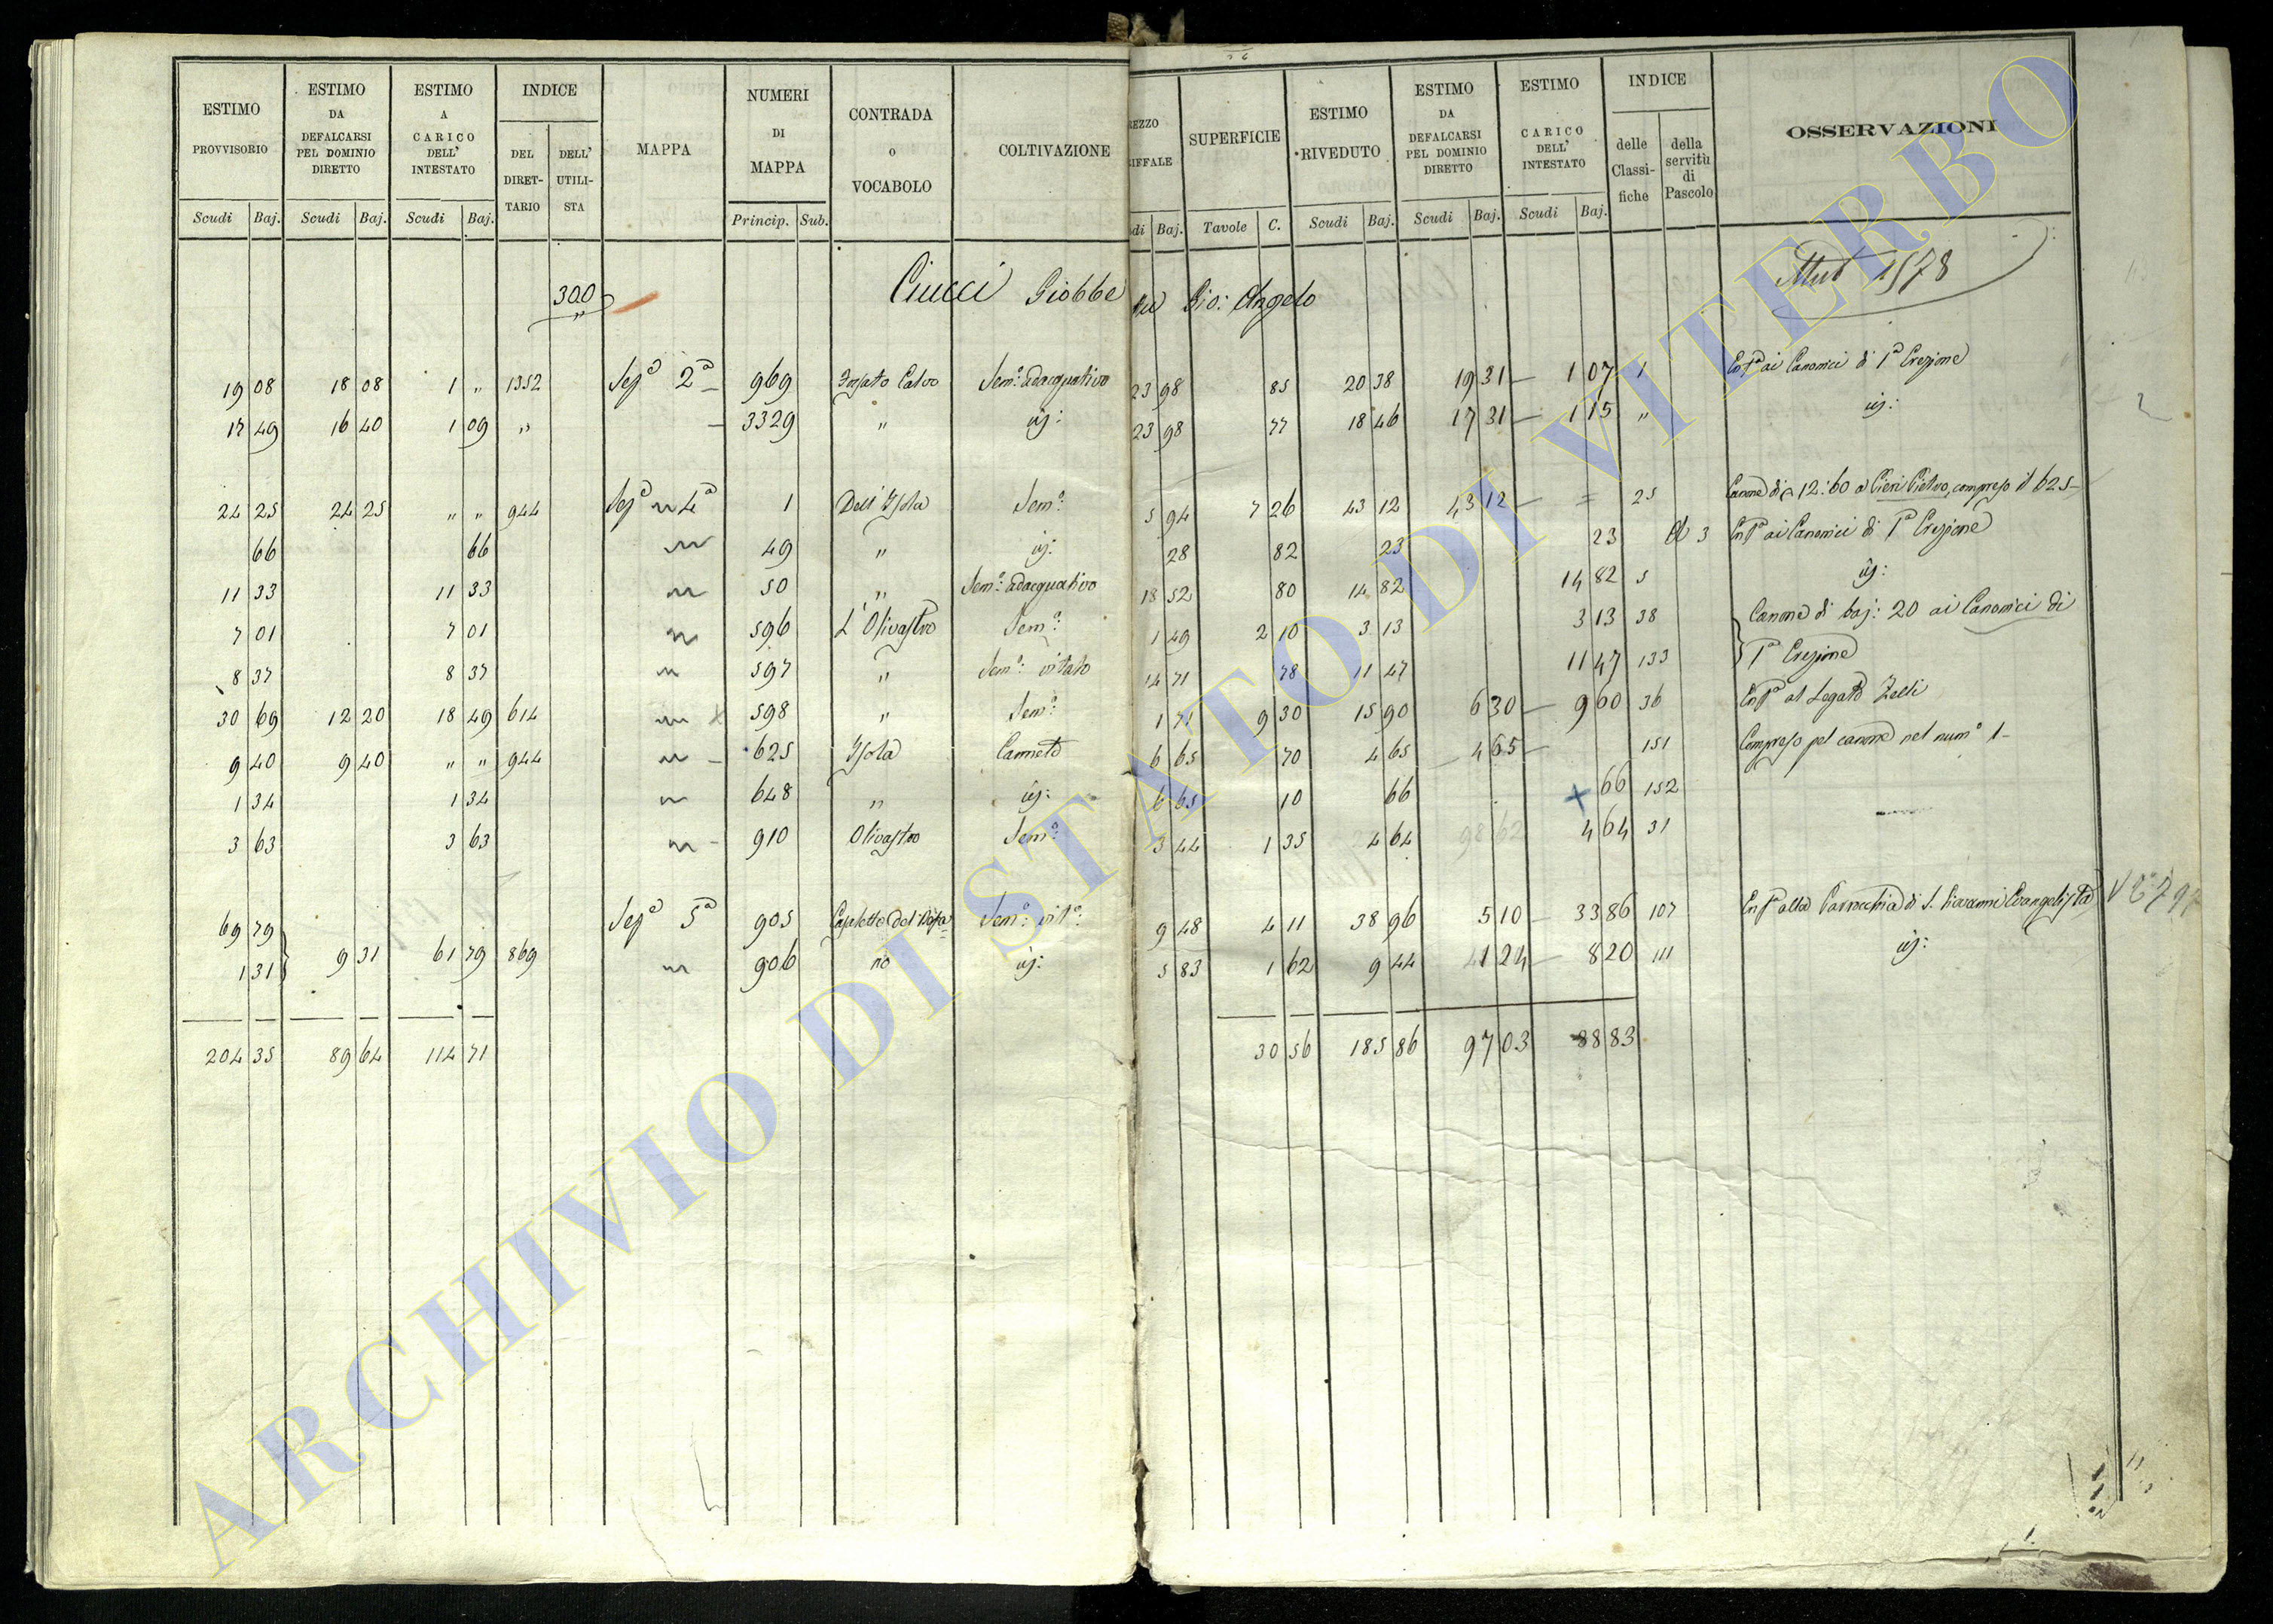 ESTIMO PROVVISORIO | ESTIMO DA DEFALCARSI PEL DOMINIO DIRETTO | ESTIMO A CARICO DELL' INTESTATO | INDICE DEL DIRET-TARIO | DELL' UTILI-STA | MAPPA | NUMERI DI MAPPA | CONTRADA o VOCABOLO | COLTIVAZIONE | REZZO RIFFALE | SUPERFICIE | ESTIMO RIVEDUTO | ESTIMO DA DEFALCARSI PEL DOMINIO DIRETTO | ESTIMO CARICO DELL' INTESTATO | INDICE delle Classi-fiche | della servitù di Pascolo | OSSERVAZIONI
Scudi | Baj. | Scudi | Baj. | Scudi | Baj. | Princip. | Sub. | di | Baj. | Tavole | C. | Scudi | Baj. | Scudi | Baj. | Scudi | Baj.
300 Ciucci Giobbe fu Gio: Angelo Mut 1578
19 08 | 18 08 | 1 " | 1352 | Sez.ª 2ª | 969 | Fossato Calvo | Sem.º adacquativo | 23 98 | 85 | 20 38 | 19 31 | 1 07 | 1 | Enf.ª ai Canonici di 1ª Erezione
17 49 | 16 40 | 1 09 | " | 3329 | " | id: | 23 98 | 77 | 18 46 | 17 31 | 1 15 | " | id:
24 25 | 24 25 | " " | 944 | Sez.ª 4ª | 1 | Dell'Isola | Sem.º | 5 94 | 7 26 | 43 12 | 43 12 | = | 25 | Canone di 12:60 a Pieri Pietro, compreso il 625
66 | 66 | 49 | " | id: | 28 | 82 | 23 | 23 | A 3 | Enf.ª ai Canonici di 1ª Erezione
11 33 | 11 33 | 50 | " | Sem.º adacquativo | 18 52 | 80 | 14 82 | 14 82 | 5 | id:
7 01 | 7 01 | 596 | L'Olivastro | Sem.º | 1 49 | 2 10 | 3 13 | 3 13 | 38 | Canone di baj: 20 ai Canonici di
8 37 | 8 37 | 597 | " | Sem.º vitato | 14 71 | 78 | 11 47 | 11 47 | 133 | 1ª Erezione
30 69 | 12 20 | 18 49 | 614 | 598 | " | Sem.º | 1 71 | 9 30 | 15 90 | 6 30 | 9 60 | 36 | Enf.ª al Legato Zelli
9 40 | 9 40 | " " | 944 | 625 | Isola | Canneto | 6 65 | 70 | 4 65 | 4 65 | 151 | Compreso pel canone nel num.º 1
1 34 | 1 34 | 648 | " | id: | 6 65 | 10 | 66 | 66 | 152
3 63 | 3 63 | 910 | Olivastro | Sem.º | 3 44 | 1 35 | 4 64 | 98 62 | 4 64 | 31
69 79 | Sez.ª 5ª | 905 | Sem.º vit.º | 9 48 | 4 11 | 38 96 | 5 10 | 33 86 | 107 | Enf.ª alla Parrocchia di S. Giovanni Evangelista
1 31 | 9 31 | 61 79 | 869 | 906 | no | id: | 5 83 | 1 62 | 9 44 | 1 24 | 8 20 | 111 | id:
204 35 | 89 64 | 114 71 | 30 56 | 185 86 | 97 03 | 88 83
ARCHIVIO DI STATO DI VITERBO